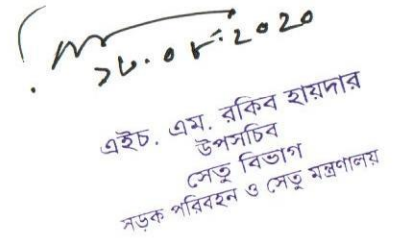 ১৮.০৮.২০২০
এইচ. এম. রকিব হায়দার
উপসচিব
সেতু বিভাগ
সড়ক পরিবহন ও সেতু মন্ত্রণালয়